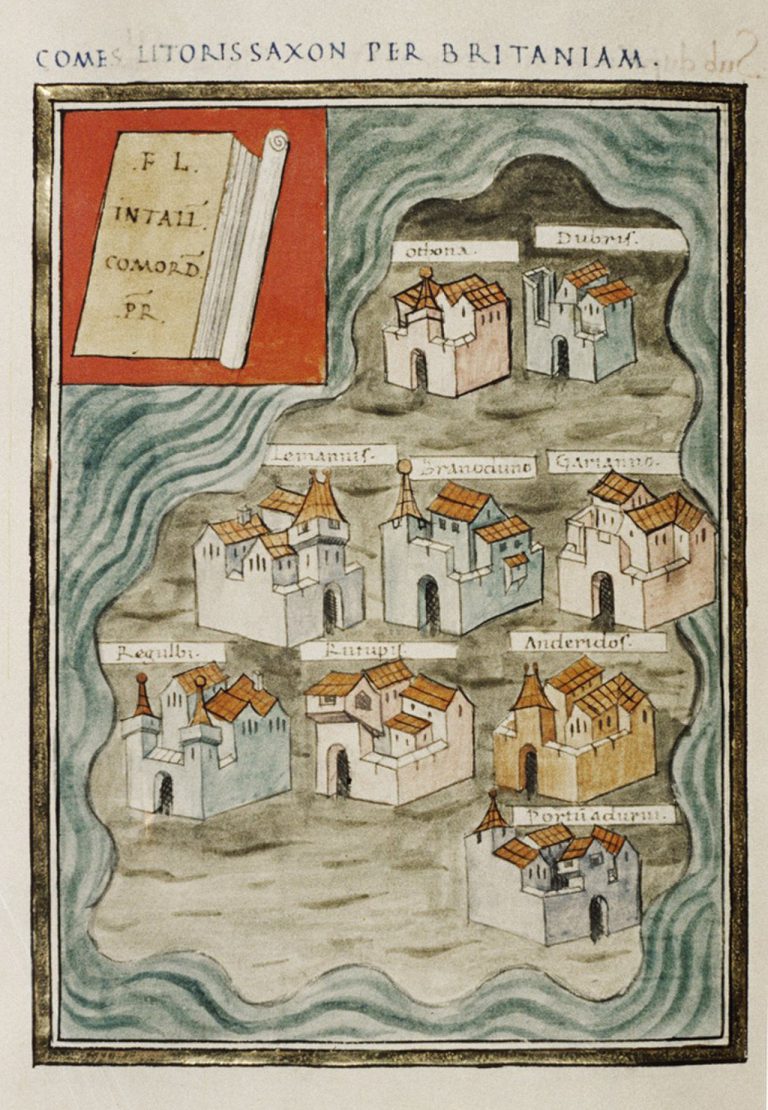 COMES LITORIS SAXON PER BRITANIAM.
.F L.
INTALL.
COMORD
.PR.
Othona.
Dubris.
Lemannis.
Branoduno
Garianno.
Regulbi.
Rutupis.
Anderidos.
Portū adurni.
Sub du